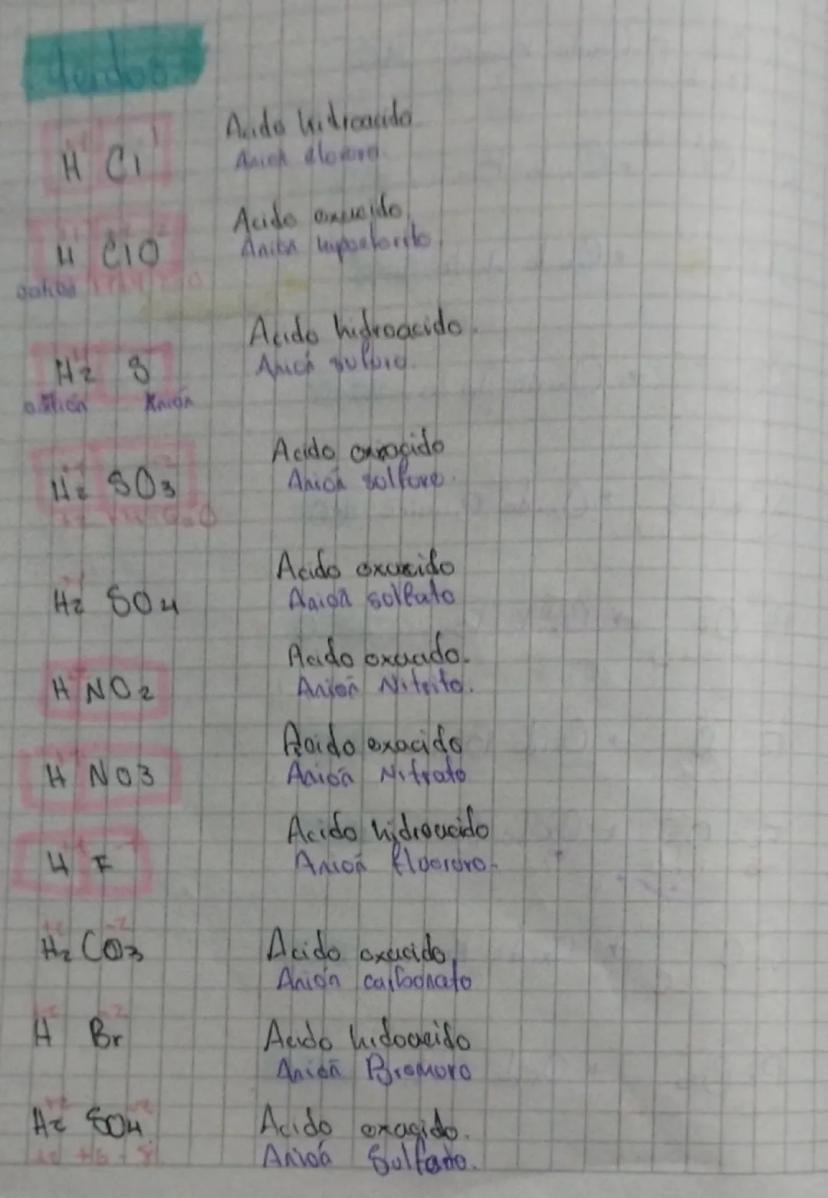 Acidos
H Cl Acido hidroacido
Anion cloruro
H ClO Acido oxacido
Anion hipoclorito
H2 S Acido hidroacido.
Anion sulfuro
catión Anión
H2 SO3 Acido oxoacido
Anion solfuro.
H2 SO4 Acido oxacido
Anion solfato
H NO2 Acido oxacido.
Anion Nitrito.
H NO3 Acido oxacido
Anion Nitrato
H F Acido hidroacido
Anion fluoruro.
+2 -2
H2 CO3 Acido oxacido
Anión carbonato
H Br Acido hidoacido
Anion Bromoro
H2 SO4 Acido oxacido.
Anion Sulfato.